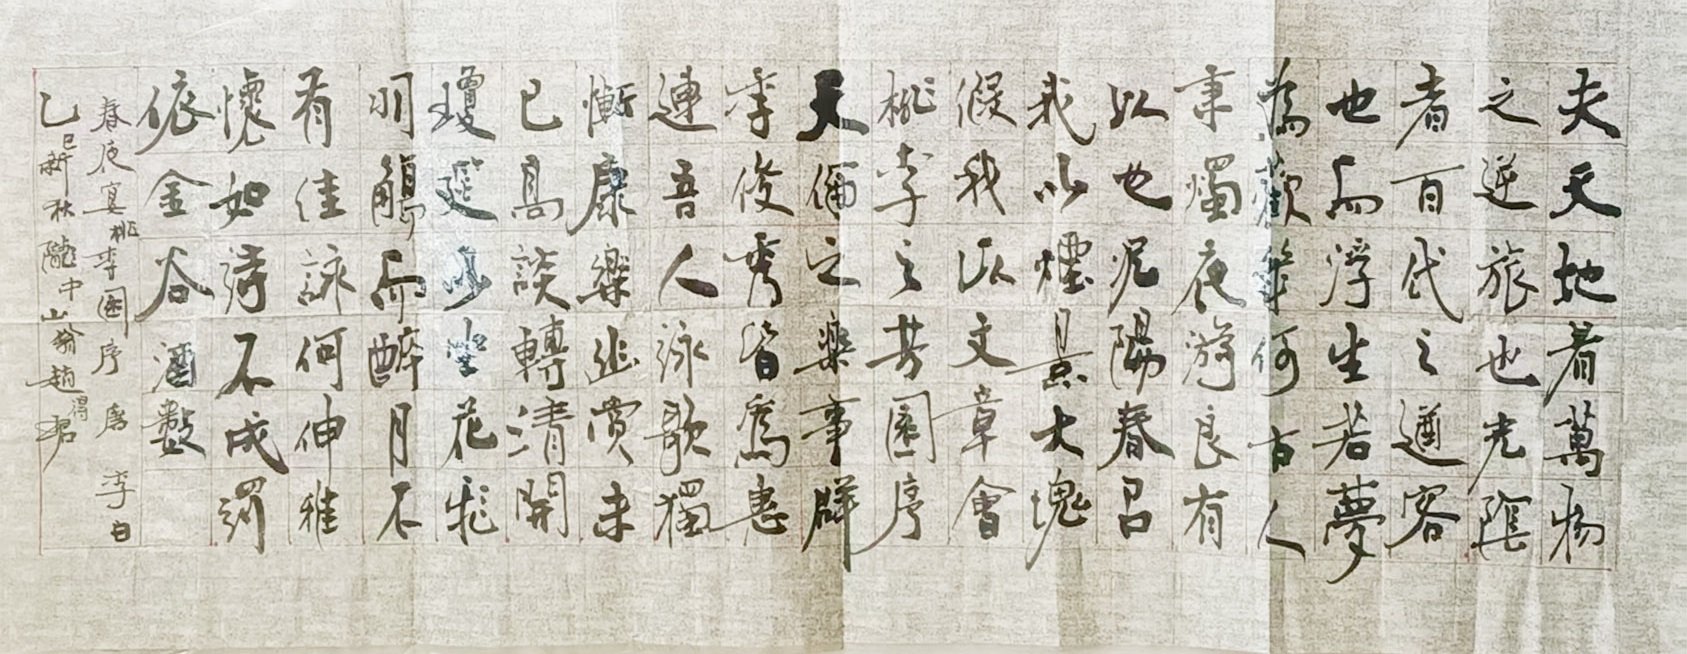 夫天地者萬物
之逆旅也光陰
者百代之過客
也而浮生若夢
為歡幾何古人
秉燭夜游良有
以也況陽春召
我以煙景大塊
假我以文章會
桃李之芳園序
天倫之樂事群
季俊秀皆為惠
連吾人詠歌獨
慚康樂幽賞未
已高談轉清開
瓊筵以坐花飛
羽觴而醉月不
有佳詠何伸雅
懷如詩不成罰
依金谷酒數
春夜宴桃李園序 唐 李白
乙巳新秋隴中山翁趙得珺